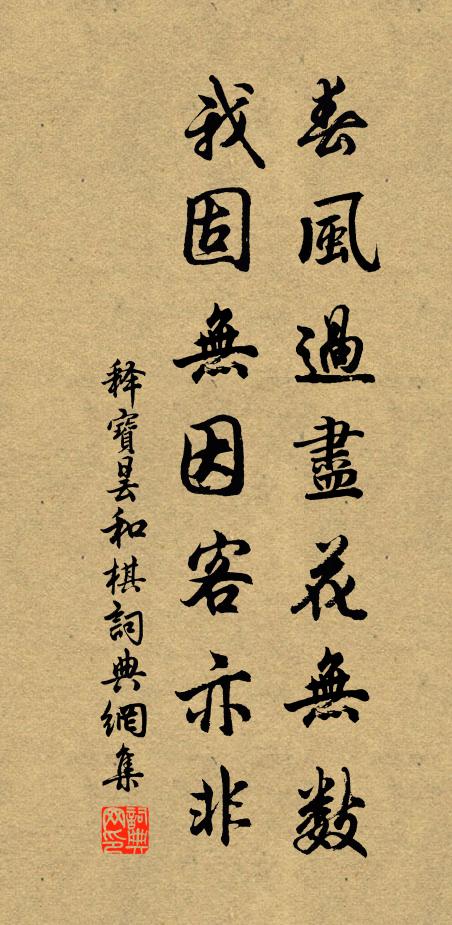 春風過盡花無數
我固無因客亦非
释寶昙和棋詞典網集
詞典网印